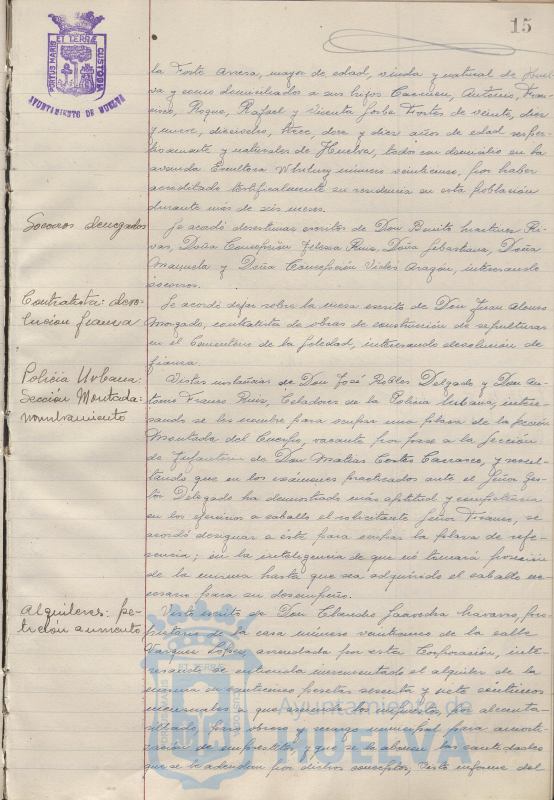 15
PORTUS MARIS ET TERRÆ CUSTODIA
AYUNTAMIENTO DE HUELVA
la Forte Arresa, mayor de edad, viuda y natural de Huel-
va y como domiciliados a sus hijos Carmen, Antonio, Fran-
cisco, Roque, Rafael y Vicenta Forte de veinte, diez
y nueve, dieciocho, trece, doce y diez años de edad respec-
tivamente y naturales de Huelva, todos con domicilio en la
avenida Escultora Whitney número veinticinco, por haber
acreditado testificalmente su residencia en esta población
durante más de seis meses.
Socorros denegados
Se acordó desestimar escritos de Don Benito Martínez Ri-
vas, Doña Concepción Ruiz, Doña Sebastiana, Doña
Manuela y Doña Concepción Vides Aragón, interesando
socorros.
Contratista: devo-
lución fianza
Se acordó dejar sobre la mesa escrito de Don Juan Alonso
Morgado, contratista de obras de construcción de sepulturas
en el Cementerio de la Soledad, interesando devolución de
fianza.
Policía Urbana:
Sección Montada:
nombramiento
Vistas instancias de Don José Robles Delgado y Don An-
tonio Franco Ruiz, Celadores de la Policía Urbana, intere-
sando se les nombre para ocupar una plaza de la Sección
Montada del Cuerpo, vacante por pase a la Sección
de Infantería de Don Matías Cortés Carrasco, y resul-
tando que en los exámenes practicados ante el Señor Ges-
tor Delegado ha demostrado más aptitud y competencia
en los ejercicios a caballo el solicitante Señor Franco, se
acordó designar a éste para ocupar la plaza de refe-
rencia; en la inteligencia de que no tomará posesión
de la misma hasta que sea adquirido el caballo ne-
cesario para su desempeño.
Alquileres: pe-
tición aumento
Visto escrito de Don Claudio Saavedra Navarro, pro-
pietario de la casa número veintiuno de la calle
Vázquez López, arrendada por esta Corporación, inte-
resando se entienda incrementado el alquiler de la
misma en pesetas sesenta y siete céntimos
mensuales a que asciende los impuestos por alcanta-
rillado, para obras y recargo municipal para amorti-
zación de empréstitos, y que se le abonen las cantidades
que se le adeudan por dichos conceptos; visto informe del
Ayuntamiento de
HUELVA